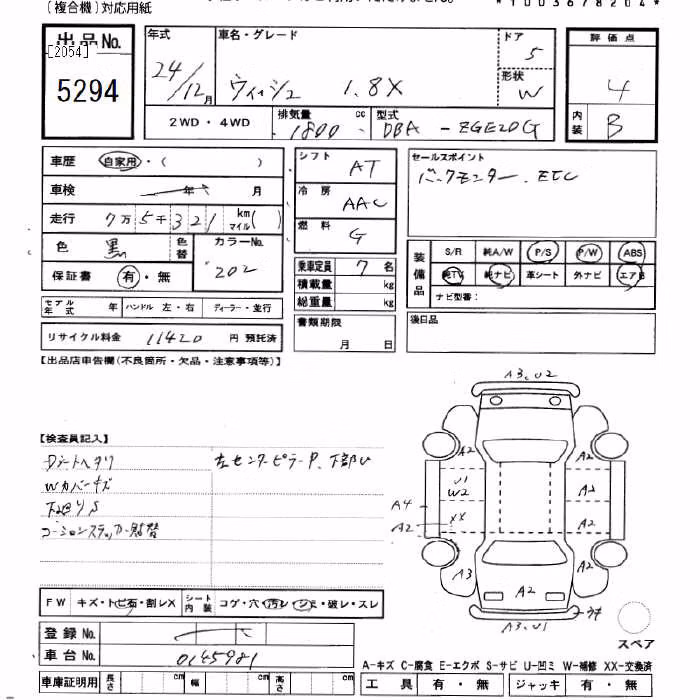 (複合機)対応用紙
*1003678204*
出品No.
[2054]
5294
年式
24/12月
車名・グレード
ウィッシュ 1.8X
ドア
5
形状
W
評価点
4
内装
B
2WD・4WD
排気量
1800 cc
型式
DBA - ZGE20G
車歴 自家用・( )
車検 年 月
走行 7万5千321 km マイル( )
色 黒 色替
カラーNo.
202
保証書 有・無
シフト AT
冷房 AAC
燃料 G
乗車定員 7名
積載量 kg
総重量 kg
セールスポイント
バックモニター、ETC
装備品
S/R 純A/W P/S P/W ABS
純TV 純ナビ 革シート 外ナビ エアB
ナビ型番:
モデル年式 年 ハンドル 左・右 ディーラー・並行
書類期限
月 日
後日品
リサイクル料金 11420 円 預託済
【出品店申告欄(不良箇所・欠品・注意事項等)】
A3、U2
【検査員記入】
Dシートヘタリ
左センターピラーP、下部U
Wカバーキズ
下廻りS
コーションステッカー貼替
A2
A2
U1
W2
A2
A4
A2
XX
A2
A3
A2
A2
A3、U1
FW キズ・トビ石・割レX
シート内装 コゲ・穴・汚レ・シミ・破レ・スレ
登録No.
車台No. 0145981
車庫証明用 長さ cm 幅 cm 高さ cm
スペア
A-キズ C-腐食 E-エクボ S-サビ U-凹ミ W-補修 XX-交換済
工具 有・無 ジャッキ 有・無